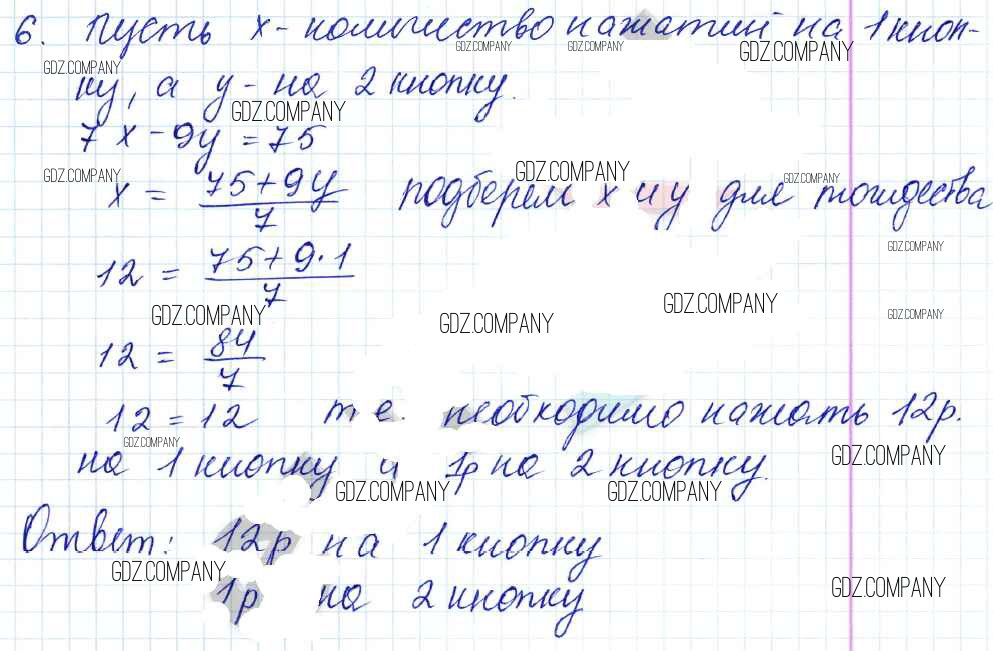 6. Пусть x - количество нажатий на 1 кноп-
GDZ.COMPANY GDZ.COMPANY GDZ.COMPANY
GDZ.COMPANY
ку, а y - на 2 кнопку.
GDZ.COMPANY
7x - 9y = 75
GDZ.COMPANY GDZ.COMPANY GDZ.COMPANY
x = (75+9y)/7 подберем x и y для тождества
GDZ.COMPANY
12 = (75+9·1)/7
GDZ.COMPANY GDZ.COMPANY GDZ.COMPANY GDZ.COMPANY
12 = 84/7
12 = 12 т.е. необходимо нажать 12р.
GDZ.COMPANY GDZ.COMPANY
на 1 кнопку и 1р на 2 кнопку.
GDZ.COMPANY GDZ.COMPANY
Ответ: 12р на 1 кнопку
GDZ.COMPANY GDZ.COMPANY
1р на 2 кнопку